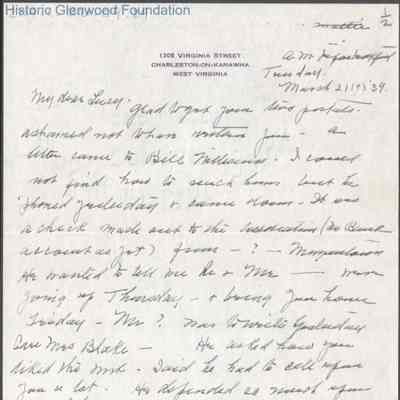 Historic Glenwood Foundation
1/2
1305 VIRGINIA STREET
CHARLESTON-ON-KANAWHA
WEST VIRGINIA
a.m.
Tuesday.
March 21(?) '39.
My dear Lucy.
Glad to get your two postals.
ashamed not to have written you - a
letter came to Bill
I could
not find how to reach him but he
'phoned yesterday & came down - It was
a check made out to the Association (no Bank
account as yet) from - ? - Morgantown
He wanted to tell me he & Mr — were
going up Thursday - & bring you home
Friday - Mr ? was to write yesterday
Mrs Blake — He asked how you
liked the work. Said he had to call upon
you a lot. He depended as much upon